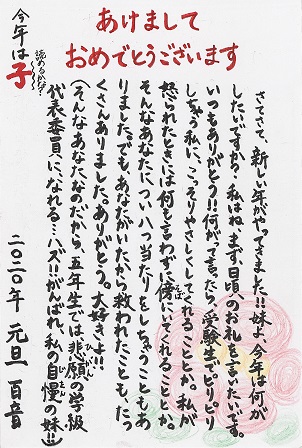 あけまして
おめでとうございます
さてさて、新しい年がやってきました!!妹よ、今年は何が
したいですか?私はね、まず、日頃へのお礼を言いたいです。
いつもありがとう!!何がって言ったら、受験生でピリピリ
しちゃう私に、こっそりやさしくしてくれることとか。私が
怒られたときには何も言わずに傍にいてくれることとか。
そば
そんなあなたについ八つ当たりをしちゃうこともあ
りました。でも、あなたがいたから救われたことも、たっ
くさんありました。ありがとう。大好きよ!!
(そんなあなたなのだから、五年生では悲願の学級
ひがん
代表委員に、なれる…ハズ!!がんばれ、私の自慢の妹!!)
じまん
二〇二〇年 元旦 百音
今年は子
読めるかな?